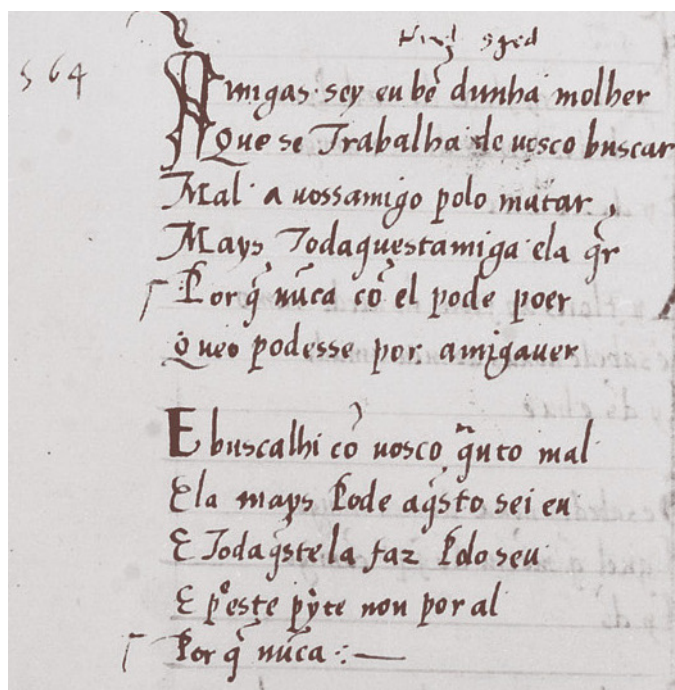 564
Amigas sey eu bẽ dunha molher
Que se Trabalha de uosco buscar
Mal a uossamigo polo matar
Mays Todaquestamiga ela q̃r
Porq̃ nũca cõ el pode poer
Queo podesse por amigauer
E buscalhi cõ uosco q̃nto mal
Ela mays Pode aq̃sto sei eu
E Todaq̃stela faz Pdo seu
E pᵉste non por al
Porq̃ nũca :—